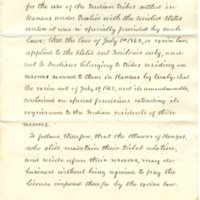 for the use of the Indian tribes settled in
Kansas under treaties with the United States
unless it was so specially provided by such
laws; that the law of July 1st 1862, or excise law,
applied to the States and Territories only, and
not to Indians belonging to tribes residing on
reserves secured to them in Kansas by treaty; that
the excise act of July 1st 1862, and its amendments,
contained no special provisions extending its
cognizance to the Indian residents of these
reserves.
It follows therefore, that the Ottawas of Kansas,
who still maintain their tribal relation,
and reside upon their reserves, may do
business without being required to pay the
license imposed therefor by the excise law.